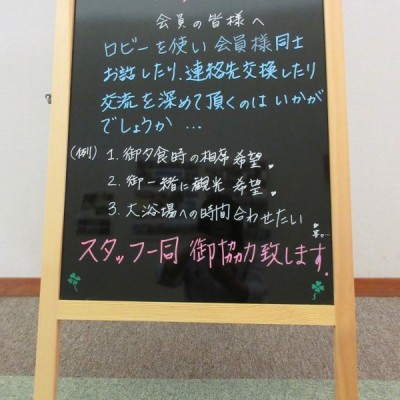 会員の皆様へ
ロビーを使い会員様同士
お話したり、連絡先交換したり
交流を深めて頂くのはいかが
でしょうか…
(例) 1. 御夕食時の相席希望。
2. 御一緒に観光希望。
3. 大浴場への時間合わせたい
スタッフ一同 御協力致します。